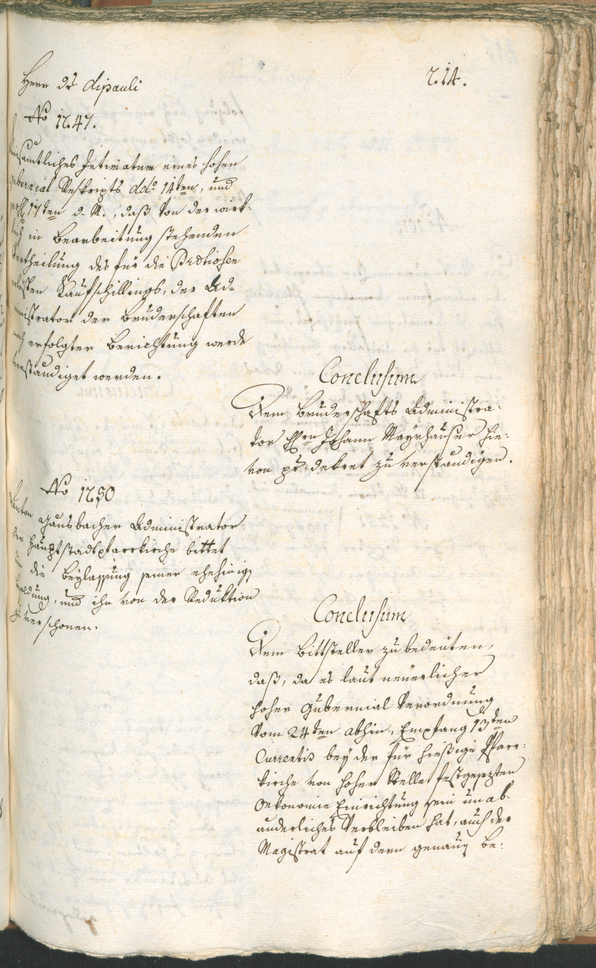 Herr v: Dipauli
214.
No 1247.
Kreisamtliches Intimatum eines hohen
Gubernial Reskripts ddo 14ten, und
17ten d. M., daß von der wirk-
lich in Bearbeitung stehenden
Vertheilung des für die
Kaufschillings, der Ad-
ministrator der Bruderschaften
nach erfolgter Berichtigung werde
verständiget werden.
Conclusum
Dem Bruderschafts Administra-
tor Hrn Johann Mayrhauser hie-
von pr: Dekret zu verständigen.
No 1250
Gausbacher Administrator
der Hauptstadtpfarrkirche bittet
um die Beylassung seiner ehehinigen
Besoldung, und ihn von der Reduktion
zu verschonen.
Conclusum
Dem Bittsteller zu bedeuten,
daß, da es laut neuerlicher
hoher Gubernial Verordnung
vom 24ten abhin, Empfang 13ten
Currentis bey der für hiesige Pfarr-
kirche von hoher Stelle festgesezten
Oekonomie Einrichtung sein unab-
änderliches Verbleiben hat, auch der
Magistrat auf dem genauen be-